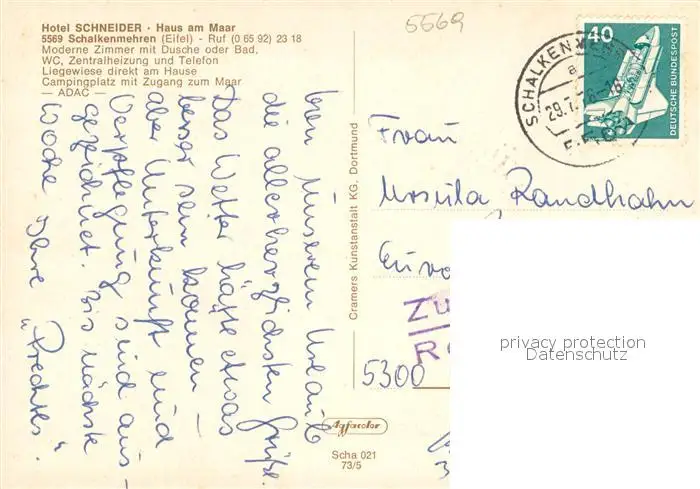 Hotel SCHNEIDER · Haus am Maar
5569 Schalkenmehren (Eifel) - Ruf (0 65 92) 23 18
Moderne Zimmer mit Dusche oder Bad,
WC, Zentralheizung und Telefon
Liegewiese direkt am Hause
Campingplatz mit Zugang zum Maar
— ADAC —
5569
40
DEUTSCHE BUNDESPOST
SCHALKENMEHREN
a
29.7.
18
Unserem Urlaub
die allerherzlichsten Grüße.
Das Wetter hätte etwas
besser sein können –
aber Unterkunft und
Verpflegung sind aus-
gezeichnet. Bis nächste
Woche Ihre
"Prechtes".
Cramers Kunstanstalt KG. Dortmund
Frau
Ursula Randhahn
Zu
5300
Agfacolor
Scha 021
73/5
privacy protection
Datenschutz